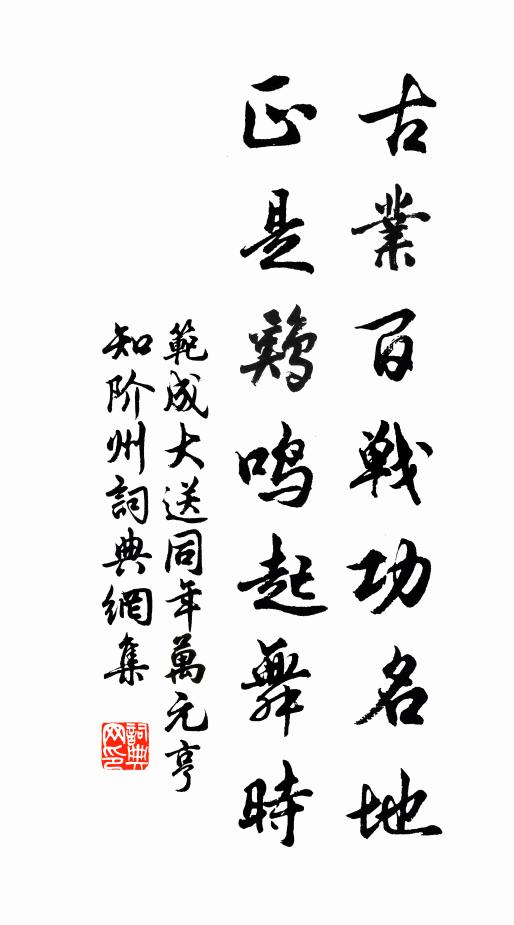 古業百戰功名地
正是鷄鳴起舞時
範成大送同年萬元亨
知阶州詞典網集
詞典
网印